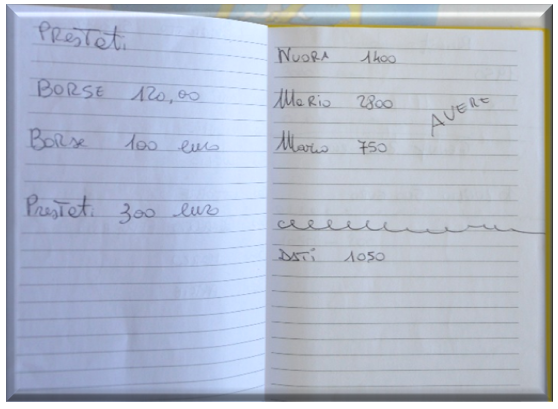 PRESTATI
BORSE 120,00
Borse 100 euro
Prestati 300 euro
NUORA 1400
Mario 2800
AVERE
Mario 750
DATI 1050